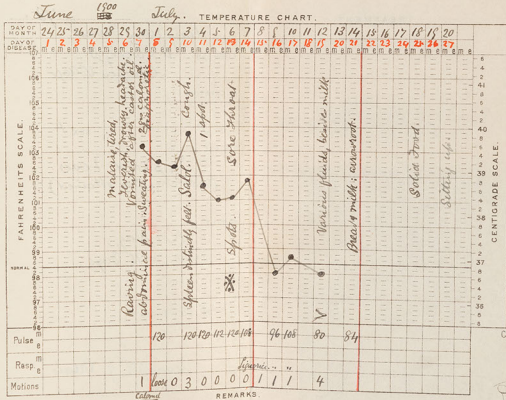 June 1900 July. TEMPERATURE CHART.
DAY OF MONTH 24 25 26 27 28 29 30 1 2 3 4 5 6 7 8 9 10 11 12 13 14 15 16 17 18 19 20
DAY OF DISEASE 1 2 3 4 5 6 7 8 9 10 11 12 13 14 15 16 17 18 19 20 21 22 23 24 25 26 27
m e m e m e m e m e m e m e m e m e m e m e m e m e m e m e m e m e m e m e m e m e m e m e m e m e m e m e
FAHRENHEITS SCALE.
106
105
104
103
102
101
100
99
NORMAL
98
97
96
CENTIGRADE SCALE.
41
40
39
38
37
36
Malaise, tired,
feverish, drowsy, headache.
Vomited after castor oil.
Raving.
abdominal pain. Sweating.
2 gr calomel.
Spleen distinctly felt. Salol.
Cough.
1 spot.
Sore Throat.
Spots
Various fluids, beside milk
V
Bread & milk: arrowroot.
Solid Food.
Sitting up.
Pulse m e 120 120 120 112 120 108 96 108 80 84
Resp. m e
Motions 1 loose 0 3 0 0 0 0 1 1 1 4
Calomel
REMARKS.